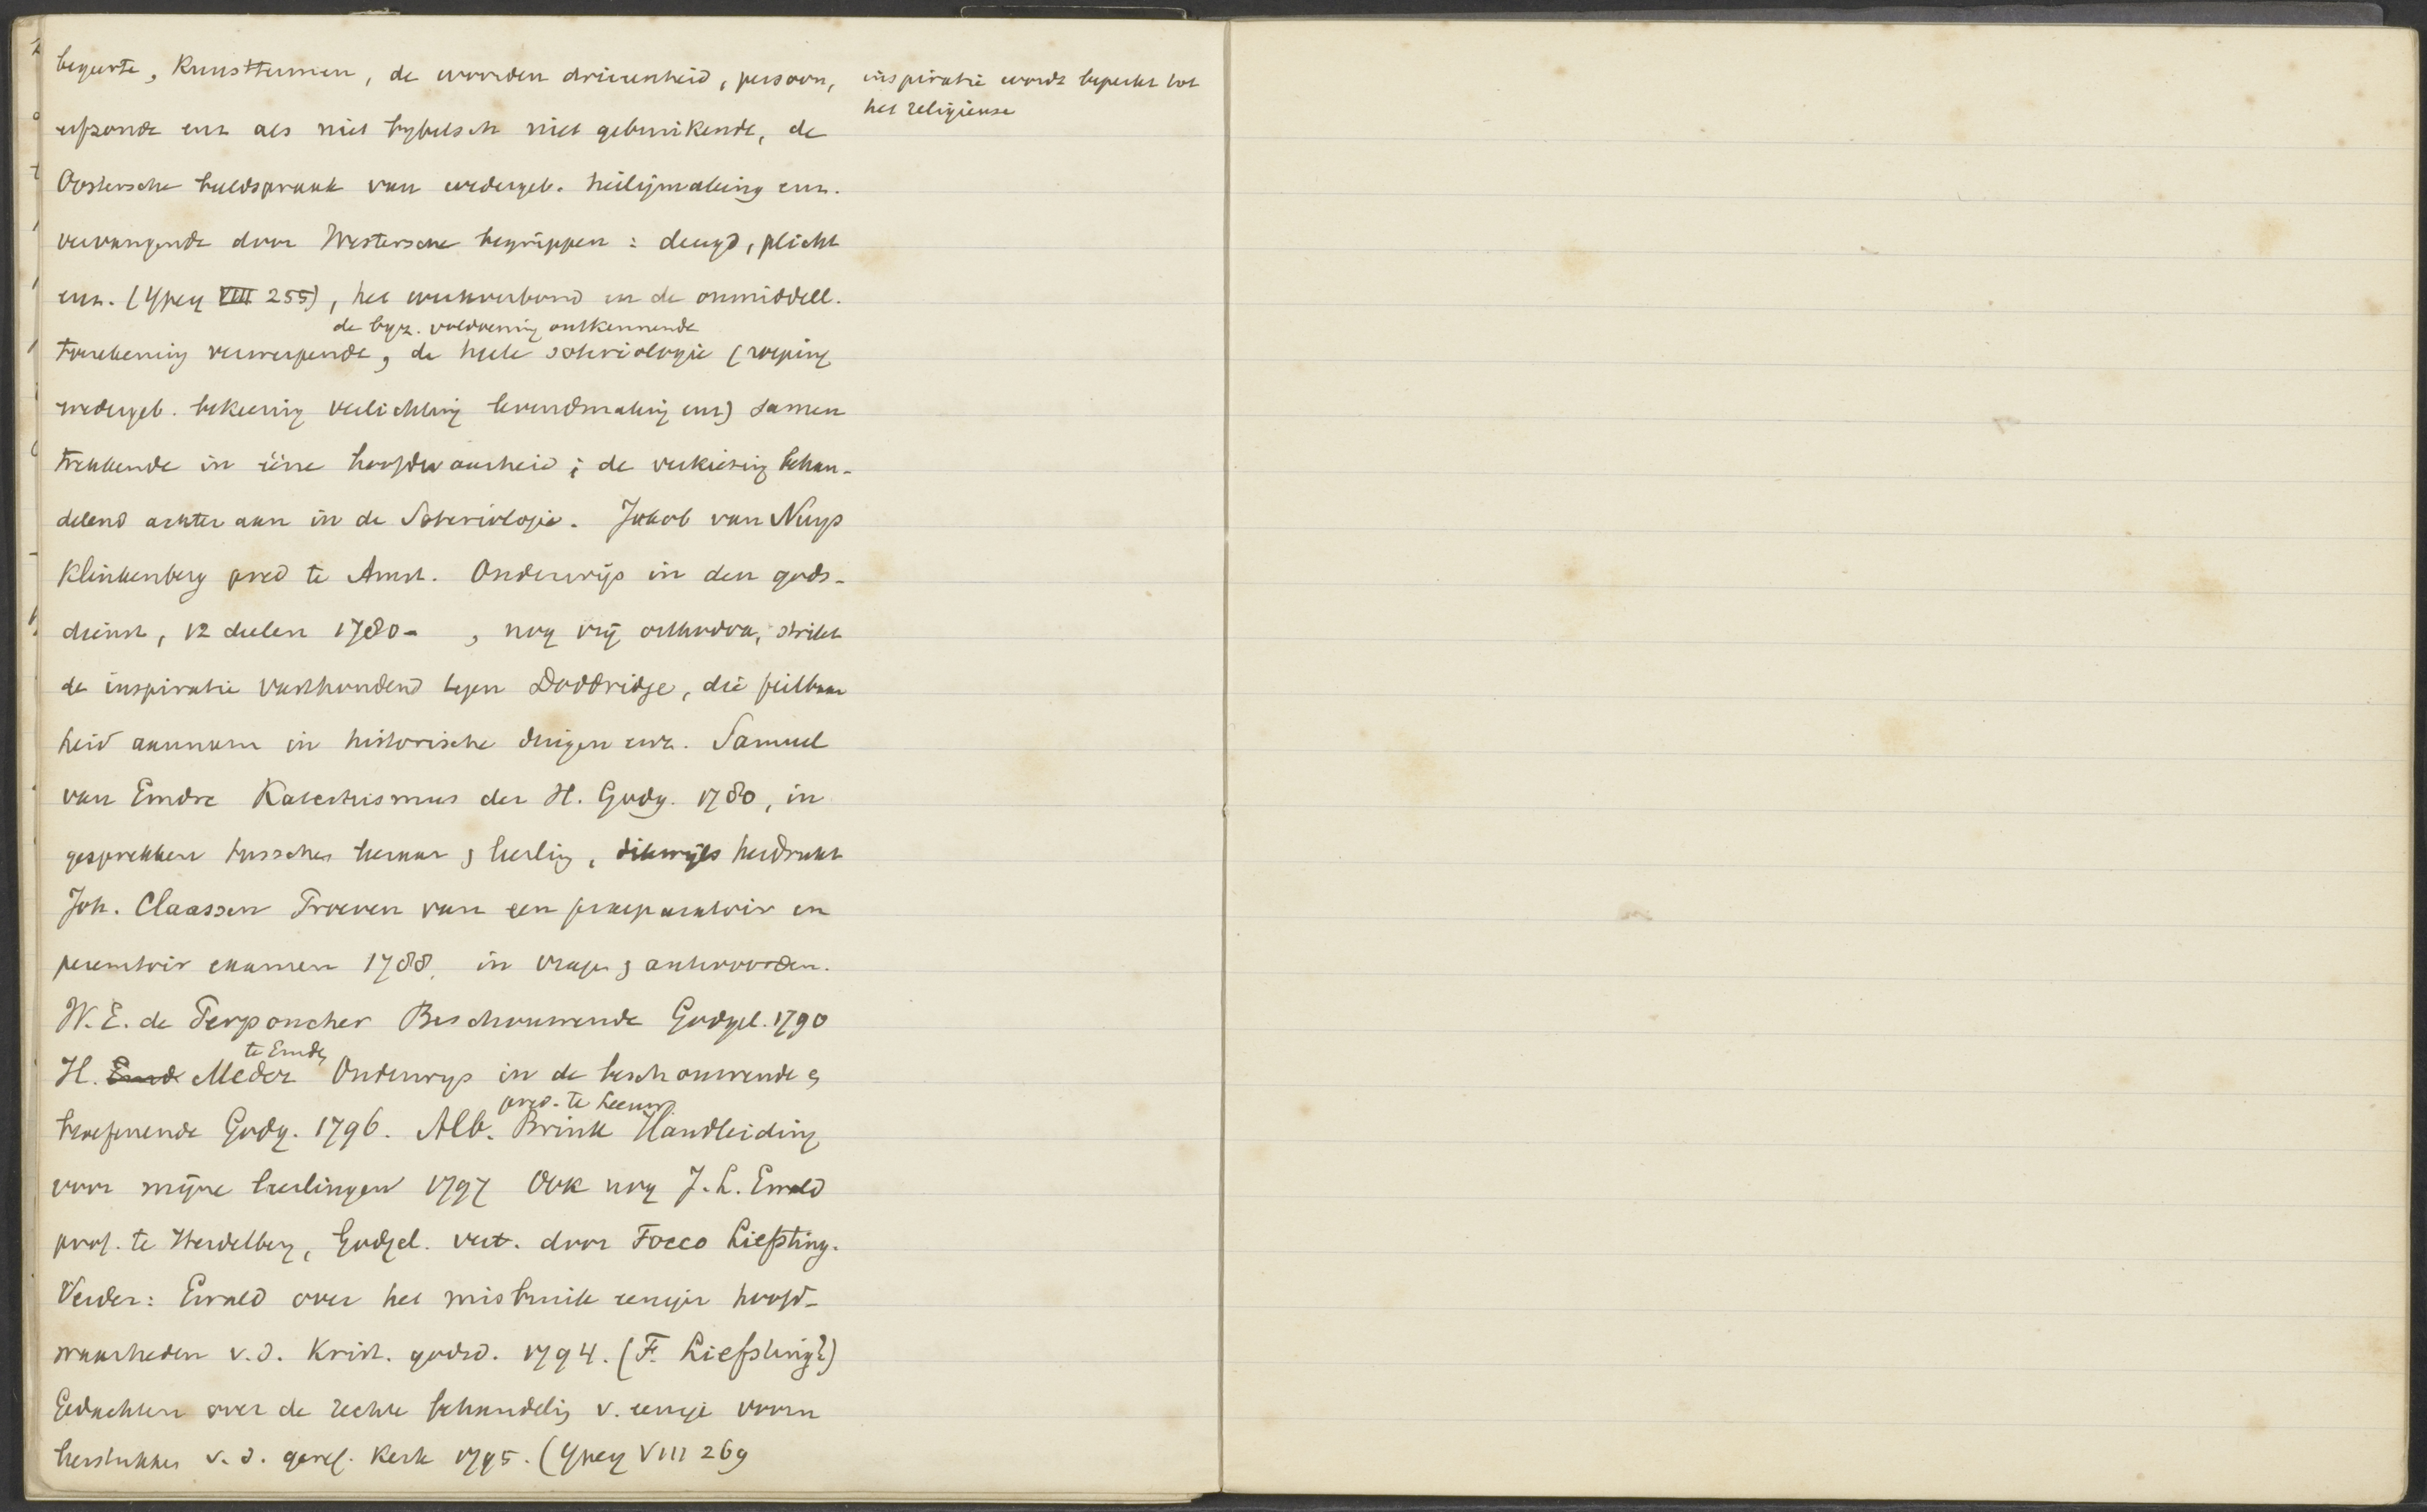 begeerte, Kunsttermen, de woorden drieeenheid, persoon,
erfzonde enz als niet bybelsch niet gebruikende, de
Oostersche beeldspraak van wedergeb. heiligmaking enz.
vervangende door Westersche begrippen : deugd, plicht
enz. (Ypey VIII 255), het werkverbond en de onmiddell.
de byz. voldoening ontkennende
toerekening verwerpende, de heele soteriologie (roeping
wedergeb. bekeering verlichting levendmaking enz) samen
trekkende in ééne hoofdwaarheid ; de verkiezing behan-
delend achter aan in de Soteriologie. Jakob van Nuys
Klinkenberg pred te Amst. Onderwijs in den gods-
dienst, 12 deelen 1780- , nog vrij orthodox, strikt
de inspiratie vasthoudend tegen Doddridge, die feilbaar
heid aannam in historische dingen enz. Samuel
van Emdre Katechismus der H. Godg. 1780, in
gesprekken tusschen leeraar & leerling, dikwijls herdrukt
Joh. Claassen Proeven van een praeparatoir en
peremtoir examen 1788, in vragen & antwoorden.
W. E. de Perponcher Beschouwende Godgel. 1790
te Emden
H. Emd Meder Onderwys in de beschouwende &
pred. te Leeuw.
beoefenende Godg. 1796. Alb. Brink Handleiding
voor mijne leerlingen 1797 Ook nog J. L. Ewald
prof. te Heidelberg, Godgel. vert. door Focco Liefsting.
Verder: Ewald over het misbruik eeniger hoofd-
waarheden v.d. Krist. godsd. 1794. (F. Liefsting?)
Gedachten over de rechte behandeling v. eenige voorn
leerstukken v. d. geref. Kerk 1795. (Ypey VIII 269
inspiratie wordt beperkt tot
het religieuse